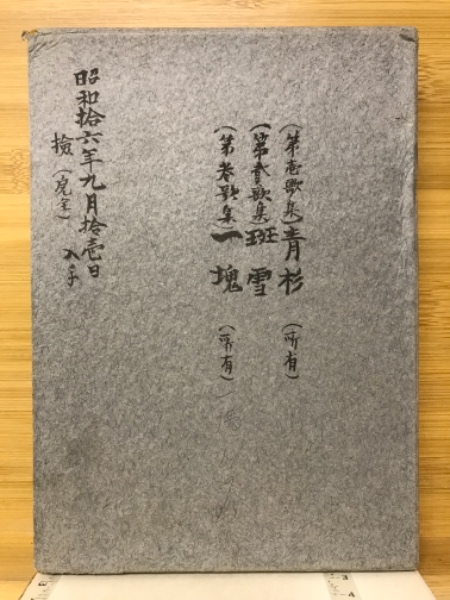 (第壱歌集)青杉 (所有)
(第弐歌集)斑雪
(第参歌集)一塊 (所有)
昭和拾六年九月拾壱日
検 入手